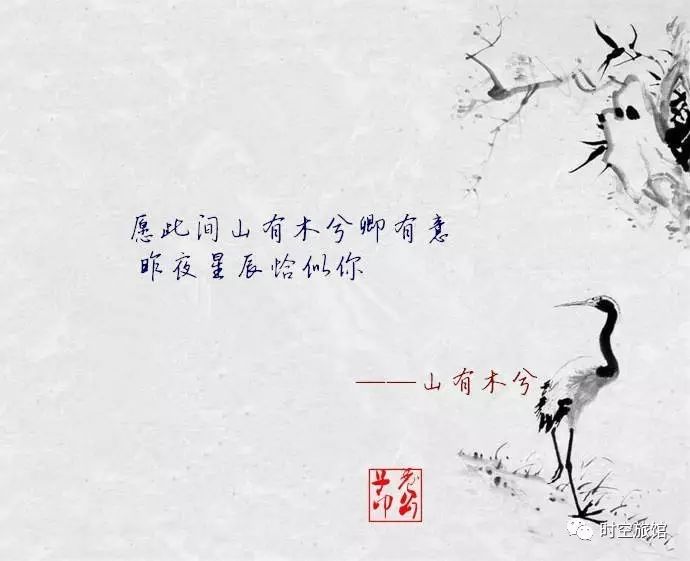 愿此间山有木兮卿有意
昨夜星辰恰似你
——山有木兮
时空旅馆